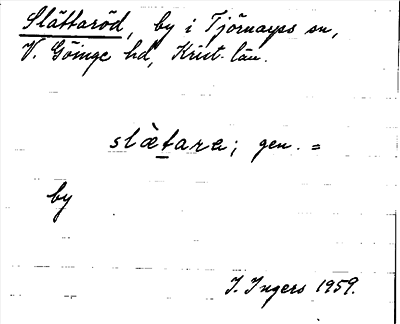 Slättaröd, by i Tjörnarps sn,
V. Göinge hd, Krist. län.
slὰtara; gen. =
by
I. Ingers 1959.